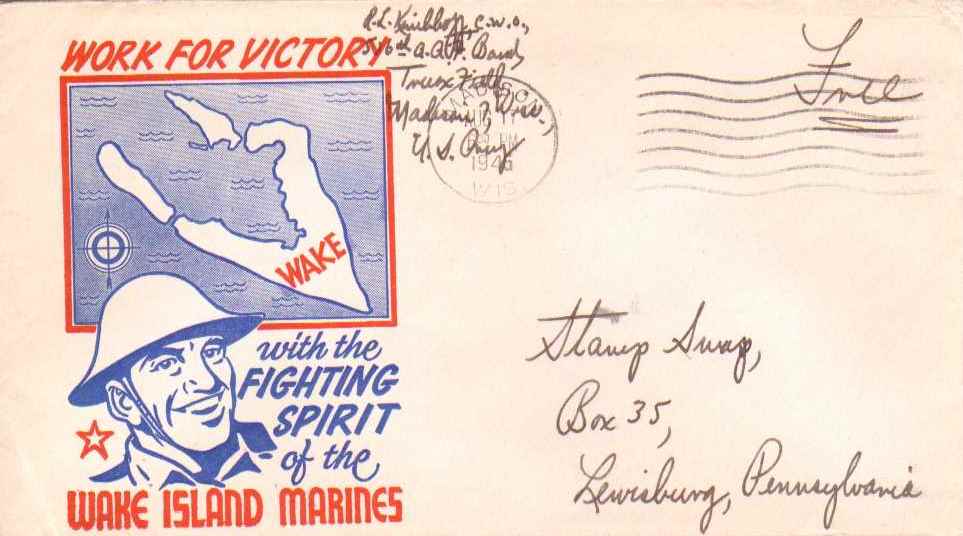 WORK FOR VICTORY
WAKE
with the
FIGHTING
SPIRIT
of the
WAKE ISLAND MARINES
R. L. Kirchhoff, C.W.O.,
A.A.F. Band,
Truax Field,
Madison 7, Wisc.,
U. S. Army
1945
WIS
Free
Stamp Swap,
Box 35,
Lewisburg, Pennsylvania